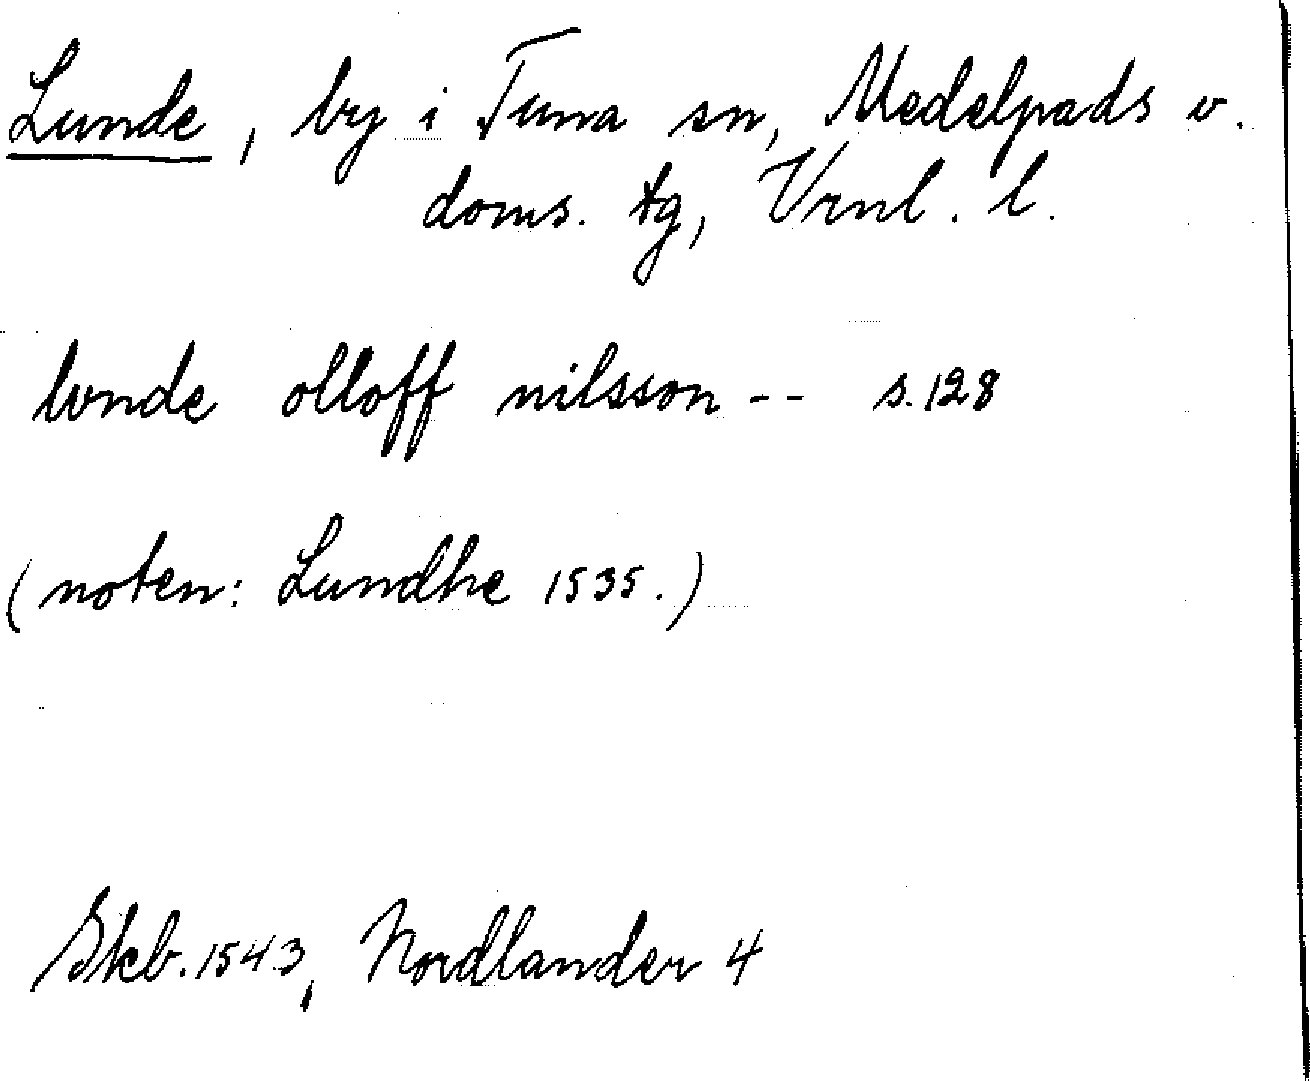 Lunde, by i Tuna sn, Medelpads v.
doms. tg, Vrnl. l.
lvnde olloff nilsson -- s. 128
(noten: Lundhe 1535.)
Skb. 1543, Nordlander 4